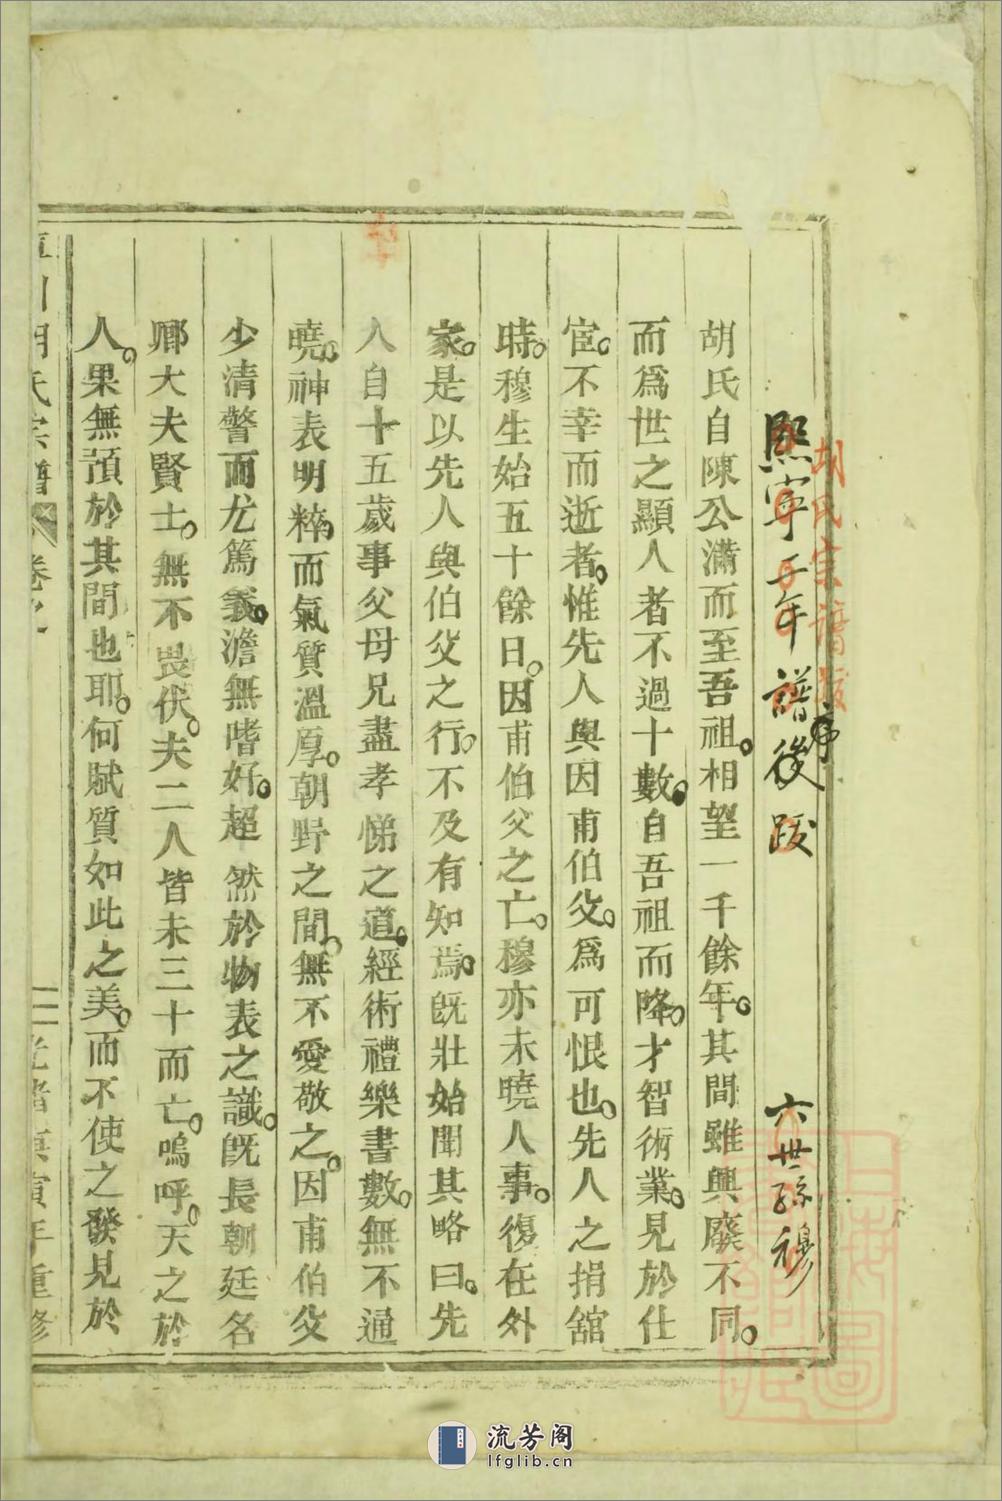 胡氏宗譜跋
序
熙寧五年譜後跋　六世孫穆
胡氏自陳公滿而至吾祖相望一千餘年其間雖興廢不同
而爲世之顯人者不過十數自吾祖而降才智術業見於仕
宦不幸而逝者惟先人與因甫伯父爲可恨也先人之捐舘
時穆生始五十餘日因甫伯父之亡穆亦未曉人事復在外
家是以先人與伯父之行不及有知焉旣壯始聞其略曰先
人自十五歲事父母兄盡孝悌之道經術禮樂書數無不通
曉神表明粹而氣質溫厚朝野之間無不愛敬之因甫伯父
少清警而尤篤義澹無嗜好超然於物表之識旣長朝廷名
卿大夫賢士無不畏伏夫二人皆未三十而亡嗚呼天之於
人果無預於其間也耶何賦質如此之美而不使之發見於
川胡氏宗譜　卷之　二　光緒庚寅年重修
流芳阁
lfglib.cn